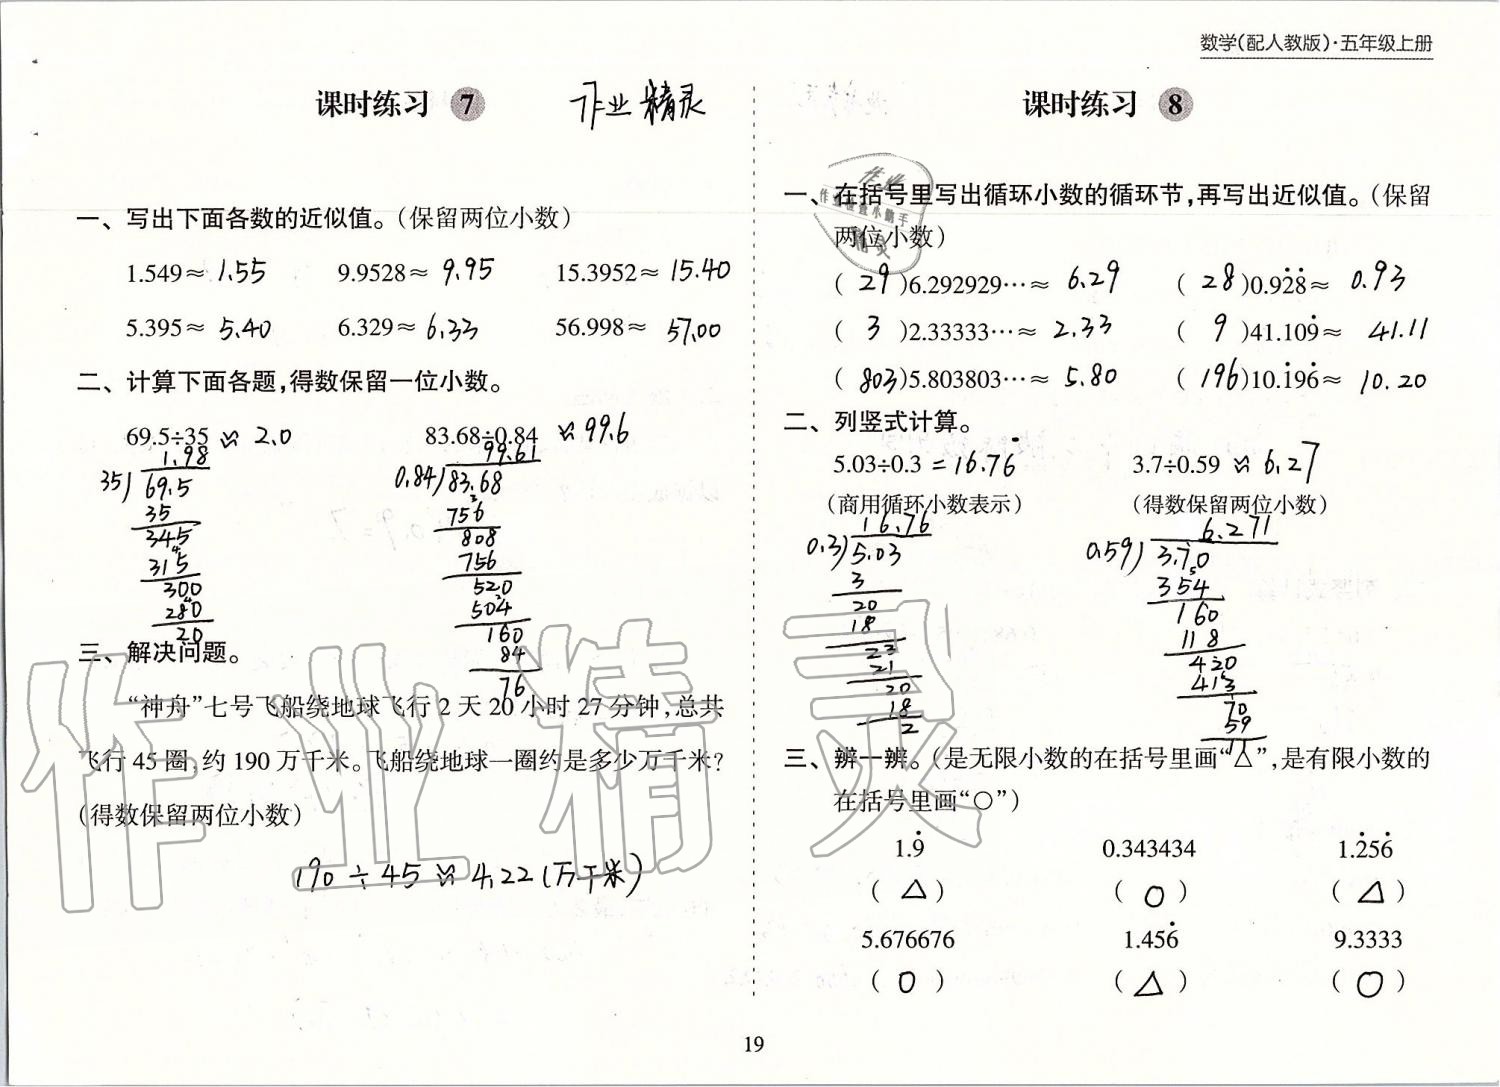 数学(配人教版)·五年级上册
课时练习 7
作业精灵
一、写出下面各数的近似值。(保留两位小数)
1.549≈ 1.55 9.9528≈ 9.95 15.3952≈ 15.40
5.395≈ 5.40 6.329≈ 6.33 56.998≈ 57.00
二、计算下面各题,得数保留一位小数。
69.5÷35 ≈ 2.0 83.68÷0.84 ≈ 99.6
1.98
35)69.5
35
345
315
300
280
20
99.61
0.84)83.68
756
808
756
520
504
160
84
76
三、解决问题。
“神舟”七号飞船绕地球飞行2天20小时27分钟,总共
飞行45圈,约190万千米。飞船绕地球一圈约是多少万千米?
(得数保留两位小数)
190÷45≈4.22(万千米)
课时练习 8
一、在括号里写出循环小数的循环节,再写出近似值。(保留
两位小数)
( 29 )6.292929…≈ 6.29 ( 28 )0.92̇8̇≈ 0.93
( 3 )2.33333…≈ 2.33 ( 9 )41.109̇≈ 41.11
( 803 )5.803803…≈ 5.80 ( 196 )10.1̇96̇≈ 10.20
二、列竖式计算。
5.03÷0.3 = 16.76̇ 3.7÷0.59 ≈ 6.27
(商用循环小数表示) (得数保留两位小数)
16.76
0.3)5.03
3
20
18
23
21
20
18
2
6.271
0.59)3.70
354
160
118
420
413
70
59
11
三、辨一辨。(是无限小数的在括号里画“△”,是有限小数的
在括号里画“○”)
1.9̇ 0.343434 1.2̇56̇
( △ ) ( ○ ) ( △ )
5.676676 1.456̇ 9.3333
( ○ ) ( △ ) ( ○ )
19
作业精灵